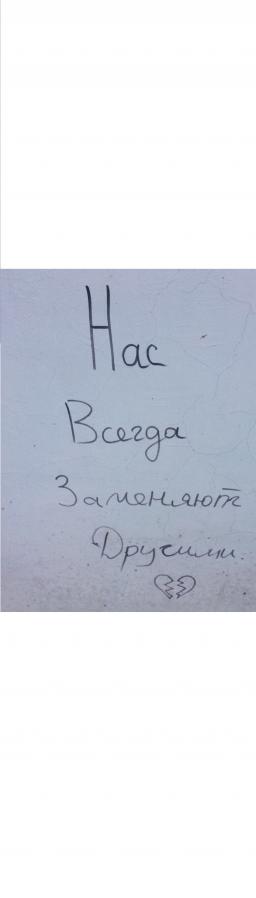 Нас
Всегда
Заменяют
Другими.